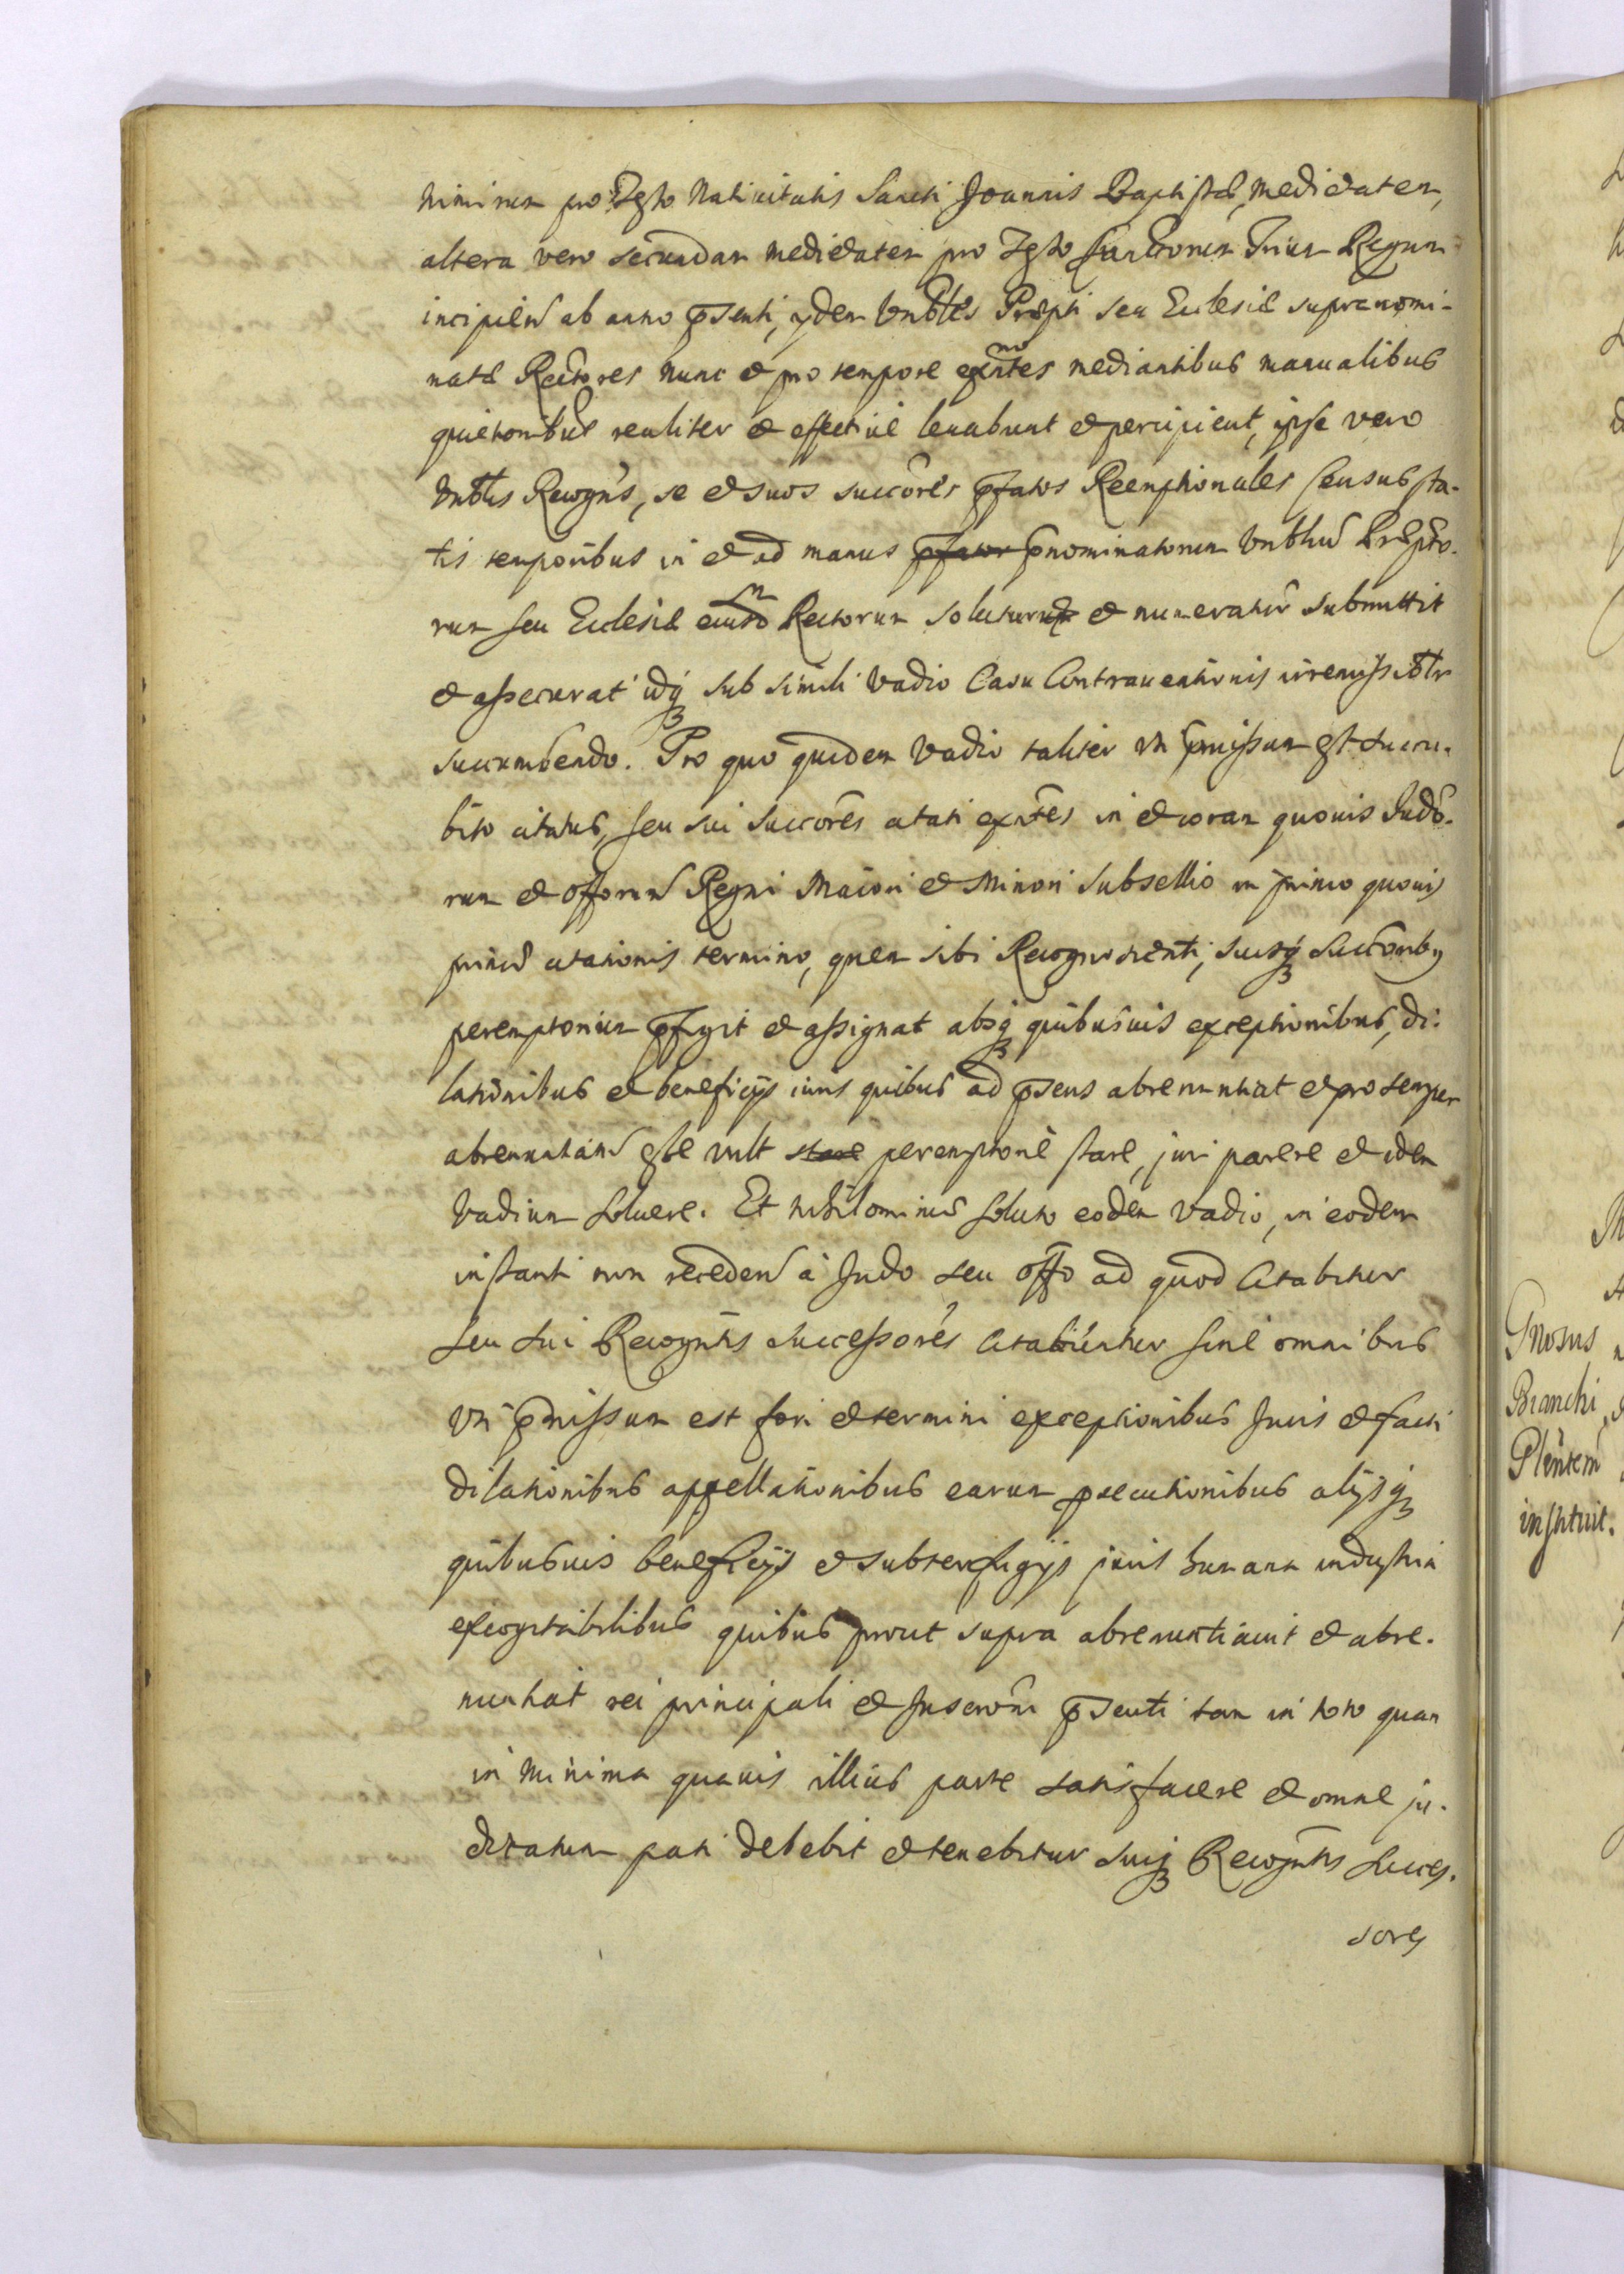 nimirum pro Festo Nativitatis Sancti Joannis Baptistæ, medietatem,
altera vero secundam medietatem pro Festo Sanctorum Trium Regum
incipien ab anno pŕsenti, ijdem Vnbles Præpti seu Ecclesiæ supranomi-
natæ Rectores nunc et pro tempore exntes mediantibus manualibus
quietonibus realiter et effective levabunt et percipient, ipse vero
Vnblis Recogns, se et suos succores pfatos Reemptionales Census sta-
tis temporibus in et ad manus pnominatorum Vnblium Præpto-
rum seu Ecclesiæ eiusd Rectorum soluturum et numeratur submittit
et assecurat idq sub simili vadio Casu Contraventionis irremissiblr
succumbendo. Pro quo quidem vadio taliter vti pmissum est succu-
bito citatus, seu sui succores citati exntes in et coram quovis Judo-
rum et offorum Regni Maiori et Minori Subsellio in primo quovis
primæ citationis termino, quem sibi Recognoscenti, suisq Succoribus
peremptorium pfigit et assignat absq quibusuis exceptionibus, di-
lationibus et beneficijs iuris quibus ad psens abrenuntiat et pro semper
abrenuntiatum esse vult peremptorie stare, juri parere et idem
Vadium soluere. Et nihilominus soluto eodem vadio, in eodem
instanti non recedendo à Judo seu offo ad quod Citabitur
seu sui Recogntis successores Citabuntur sine omnibus
vti pmissum est fori et termini exceptionibus Juris et facti
dilationibus appellationibus earum psecutionibus alijsq
quibusuis beneficijs et subterfugijs juris humana industria
excogitabilibus quibus prout supra abrenuntiauit et abre-
nuntiat rei principali et Inscroni psenti tam in toto quam
in minima quauis illius parte satisfacere et omne ju-
dicatum pati debebit et tenebitur suiq Recogntis succes-
sores
Gnosus
Branchi
Plentem
instituit.